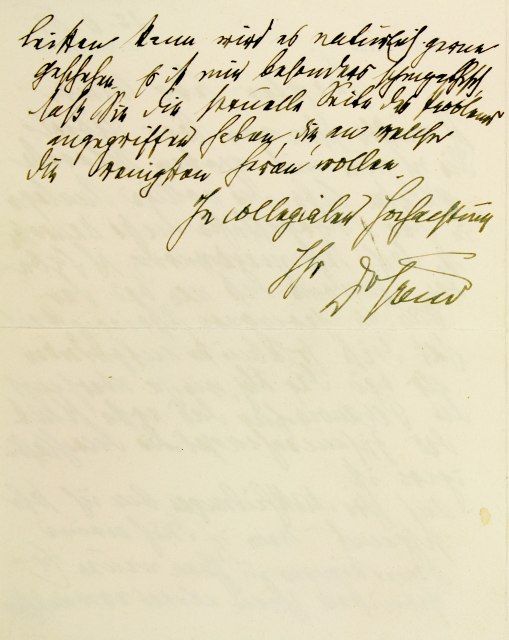 leisten kann wird es natürlich gerne
geschehen. Es ist mir besonders sympathisch,
daß Sie die sexuelle Seite des Problems
angegriffen haben, die an welche
die wenigsten heran wollen.
In collegialer Hochachtung
Ihr Dr Freud